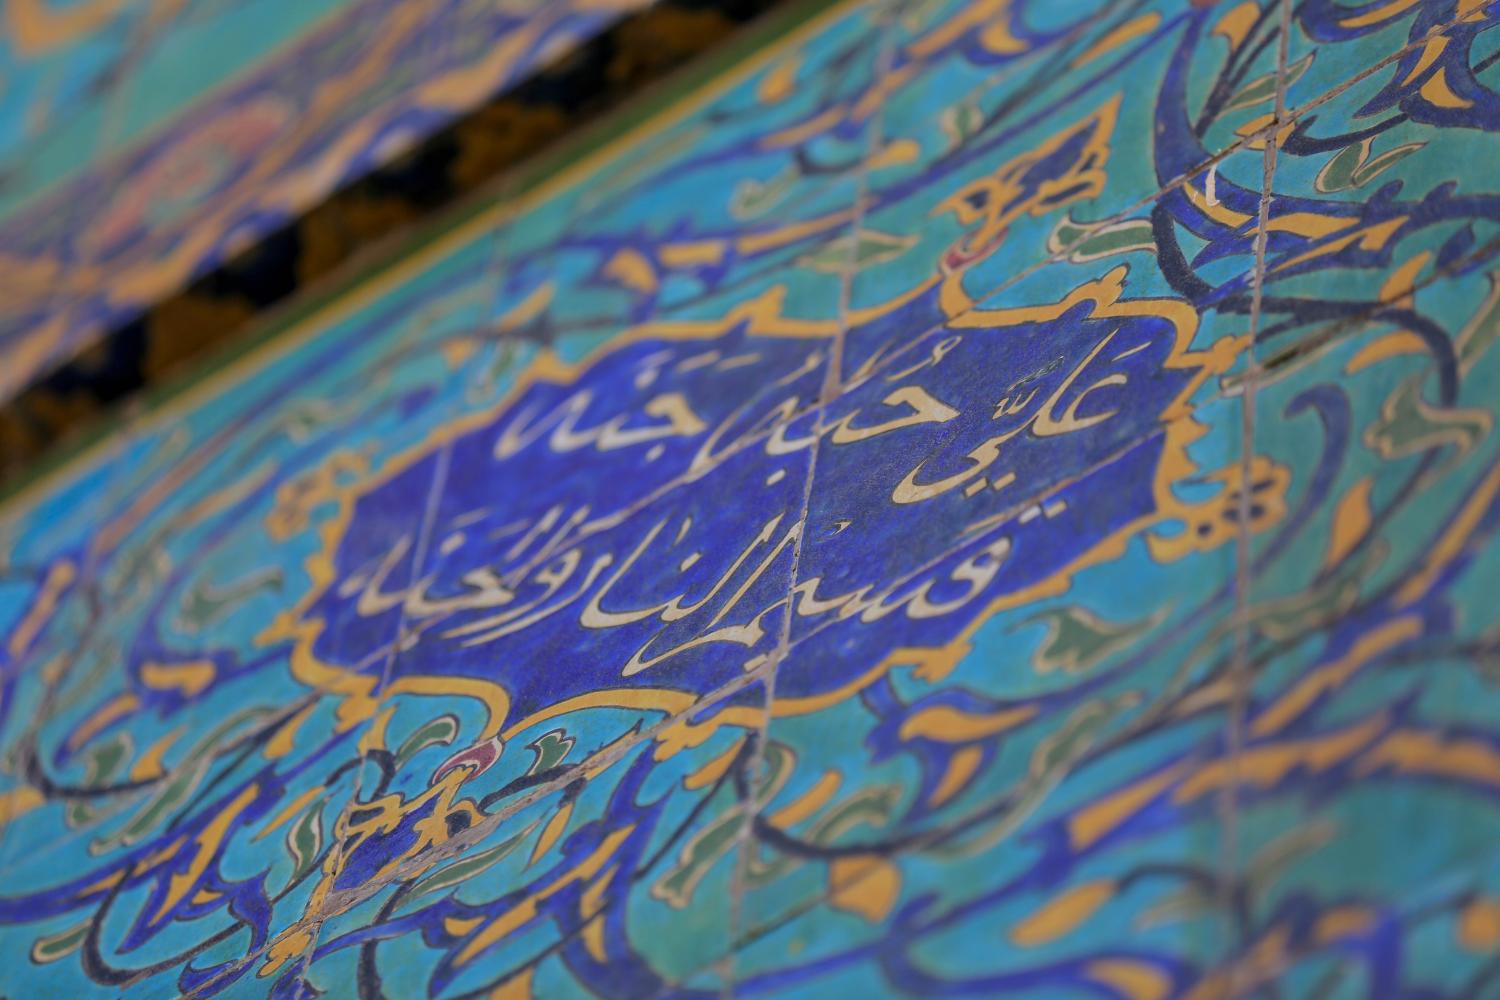 عَلِيٌّ حُبُّهُ جُنَّه
قَسِیمُ النّارِ وَالْجَنَّه